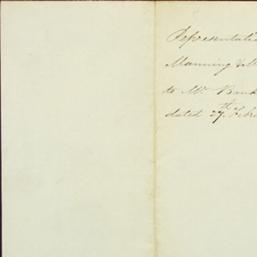 Representatio
Manning & M
to Mr. Bank
dated 27th Febr